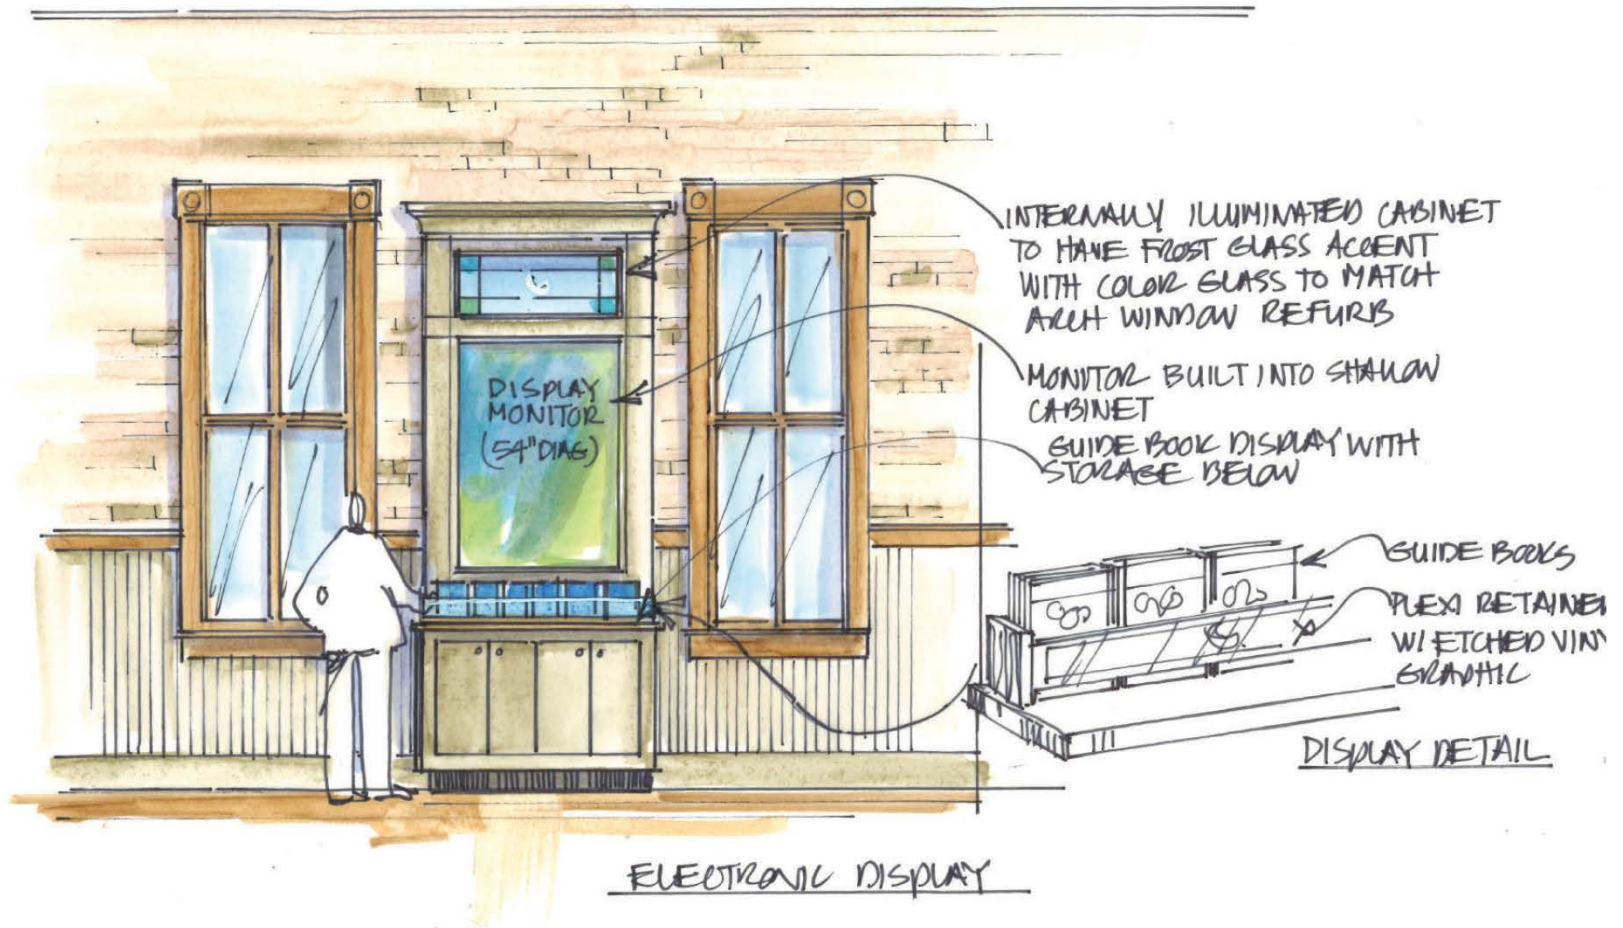 INTERNALLY ILLUMINATED CABINET
TO HAVE FROST GLASS ACCENT
WITH COLOR GLASS TO MATCH
ARCH WINDOW REFURB
DISPLAY
MONITOR
(54" DIAG)
MONITOR BUILT INTO SHALLOW
CABINET
GUIDE BOOK DISPLAY WITH
STORAGE BELOW
GUIDE BOOKS
PLEXI RETAINE
W/ ETCHED VIN
GRAPHIC
DISPLAY DETAIL
ELECTRONIC DISPLAY